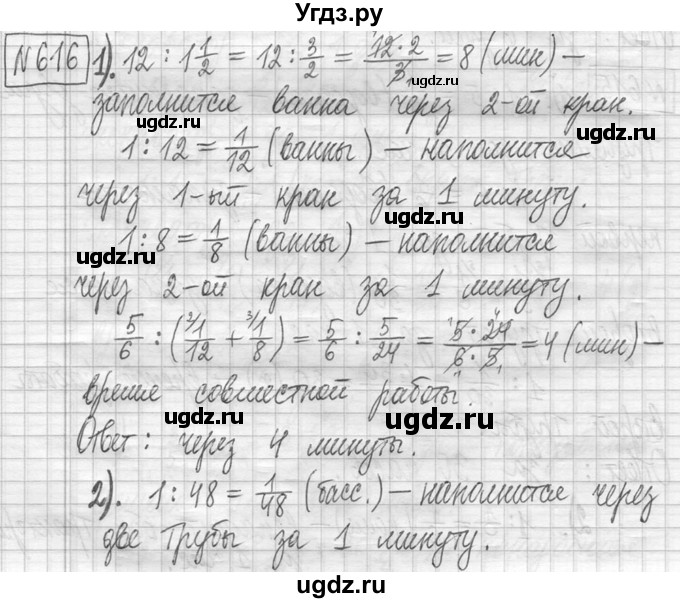 Угдз.ру
№616 1). 12 : 1 1/2 = 12 : 3/2 = 12·2/3 = 8 (мин) –
заполнится ванна через 2-ой кран.
ugdz.ru ugdz.ru
1 : 12 = 1/12 (ванны) – наполнится
ugdz.ru
через 1-ый кран за 1 минуту.
ugdz.ru
1 : 8 = 1/8 (ванны) – наполнится
ugdz.ru
через 2-ой кран за 1 минуту.
ugdz.ru
5/6 : (1/12 + 1/8) = 5/6 : 5/24 = 5·24/6·5 = 4 (мин) –
ugdz.ru
время совместной работы.
ugdz.ru
Ответ: через 4 минуты.
ugdz.ru
2). 1 : 48 = 1/48 (басс.) – наполнится через
ugdz.ru ugdz.ru
две трубы за 1 минуту.
ugdz.ru